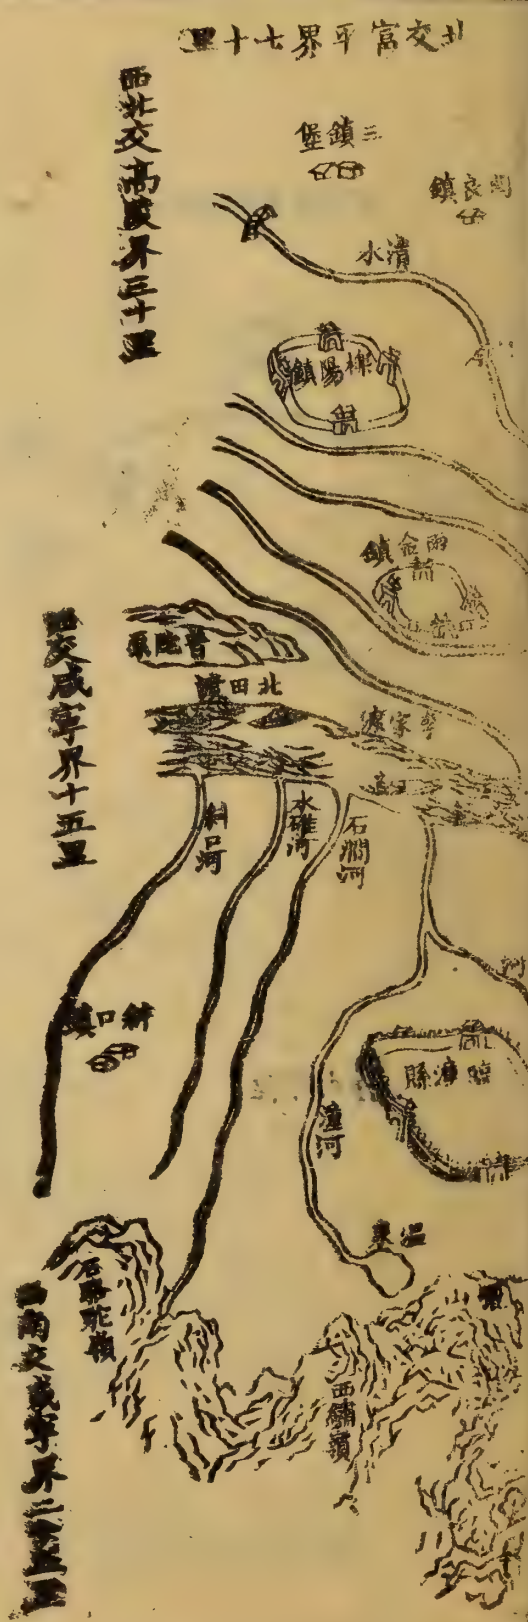 北交富平界七十里
西北交高陵界三十里
三鎮堡
關良鎮
水濆
櫟陽鎮
雨金鎮
普陀原
北田渡
西交咸寧界十五里
斜口河
水磑河
石澗河
斜口鎮
臨潼縣
潼河
溫泉
石甕駝嶺
西繡嶺
西南交咸寧界二十五里